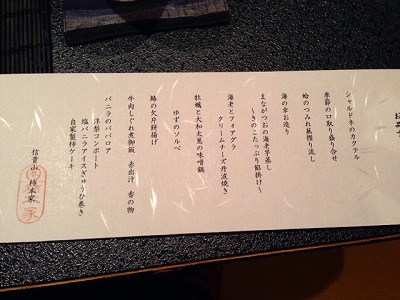 シャルドネのカクテル
季節の口取り盛り合せ
蛤のつみれ蕪摺り流し
海の幸お造り
まながつおの海老芋蒸し
～きのこたっぷり餡掛け～
海老とフォアグラ
クリームチーズ丹波焼き
牡蠣と大和太葱の味噌鍋
ゆずのソルベ
鰆の欠片餅揚げ
牛肉しぐれ煮御飯 赤出汁 香の物
バニラのババロア
洋梨コンポート
塩バニラアイスぎゅうひ巻き
自家製柿ケーキ
信貴山 柿本家